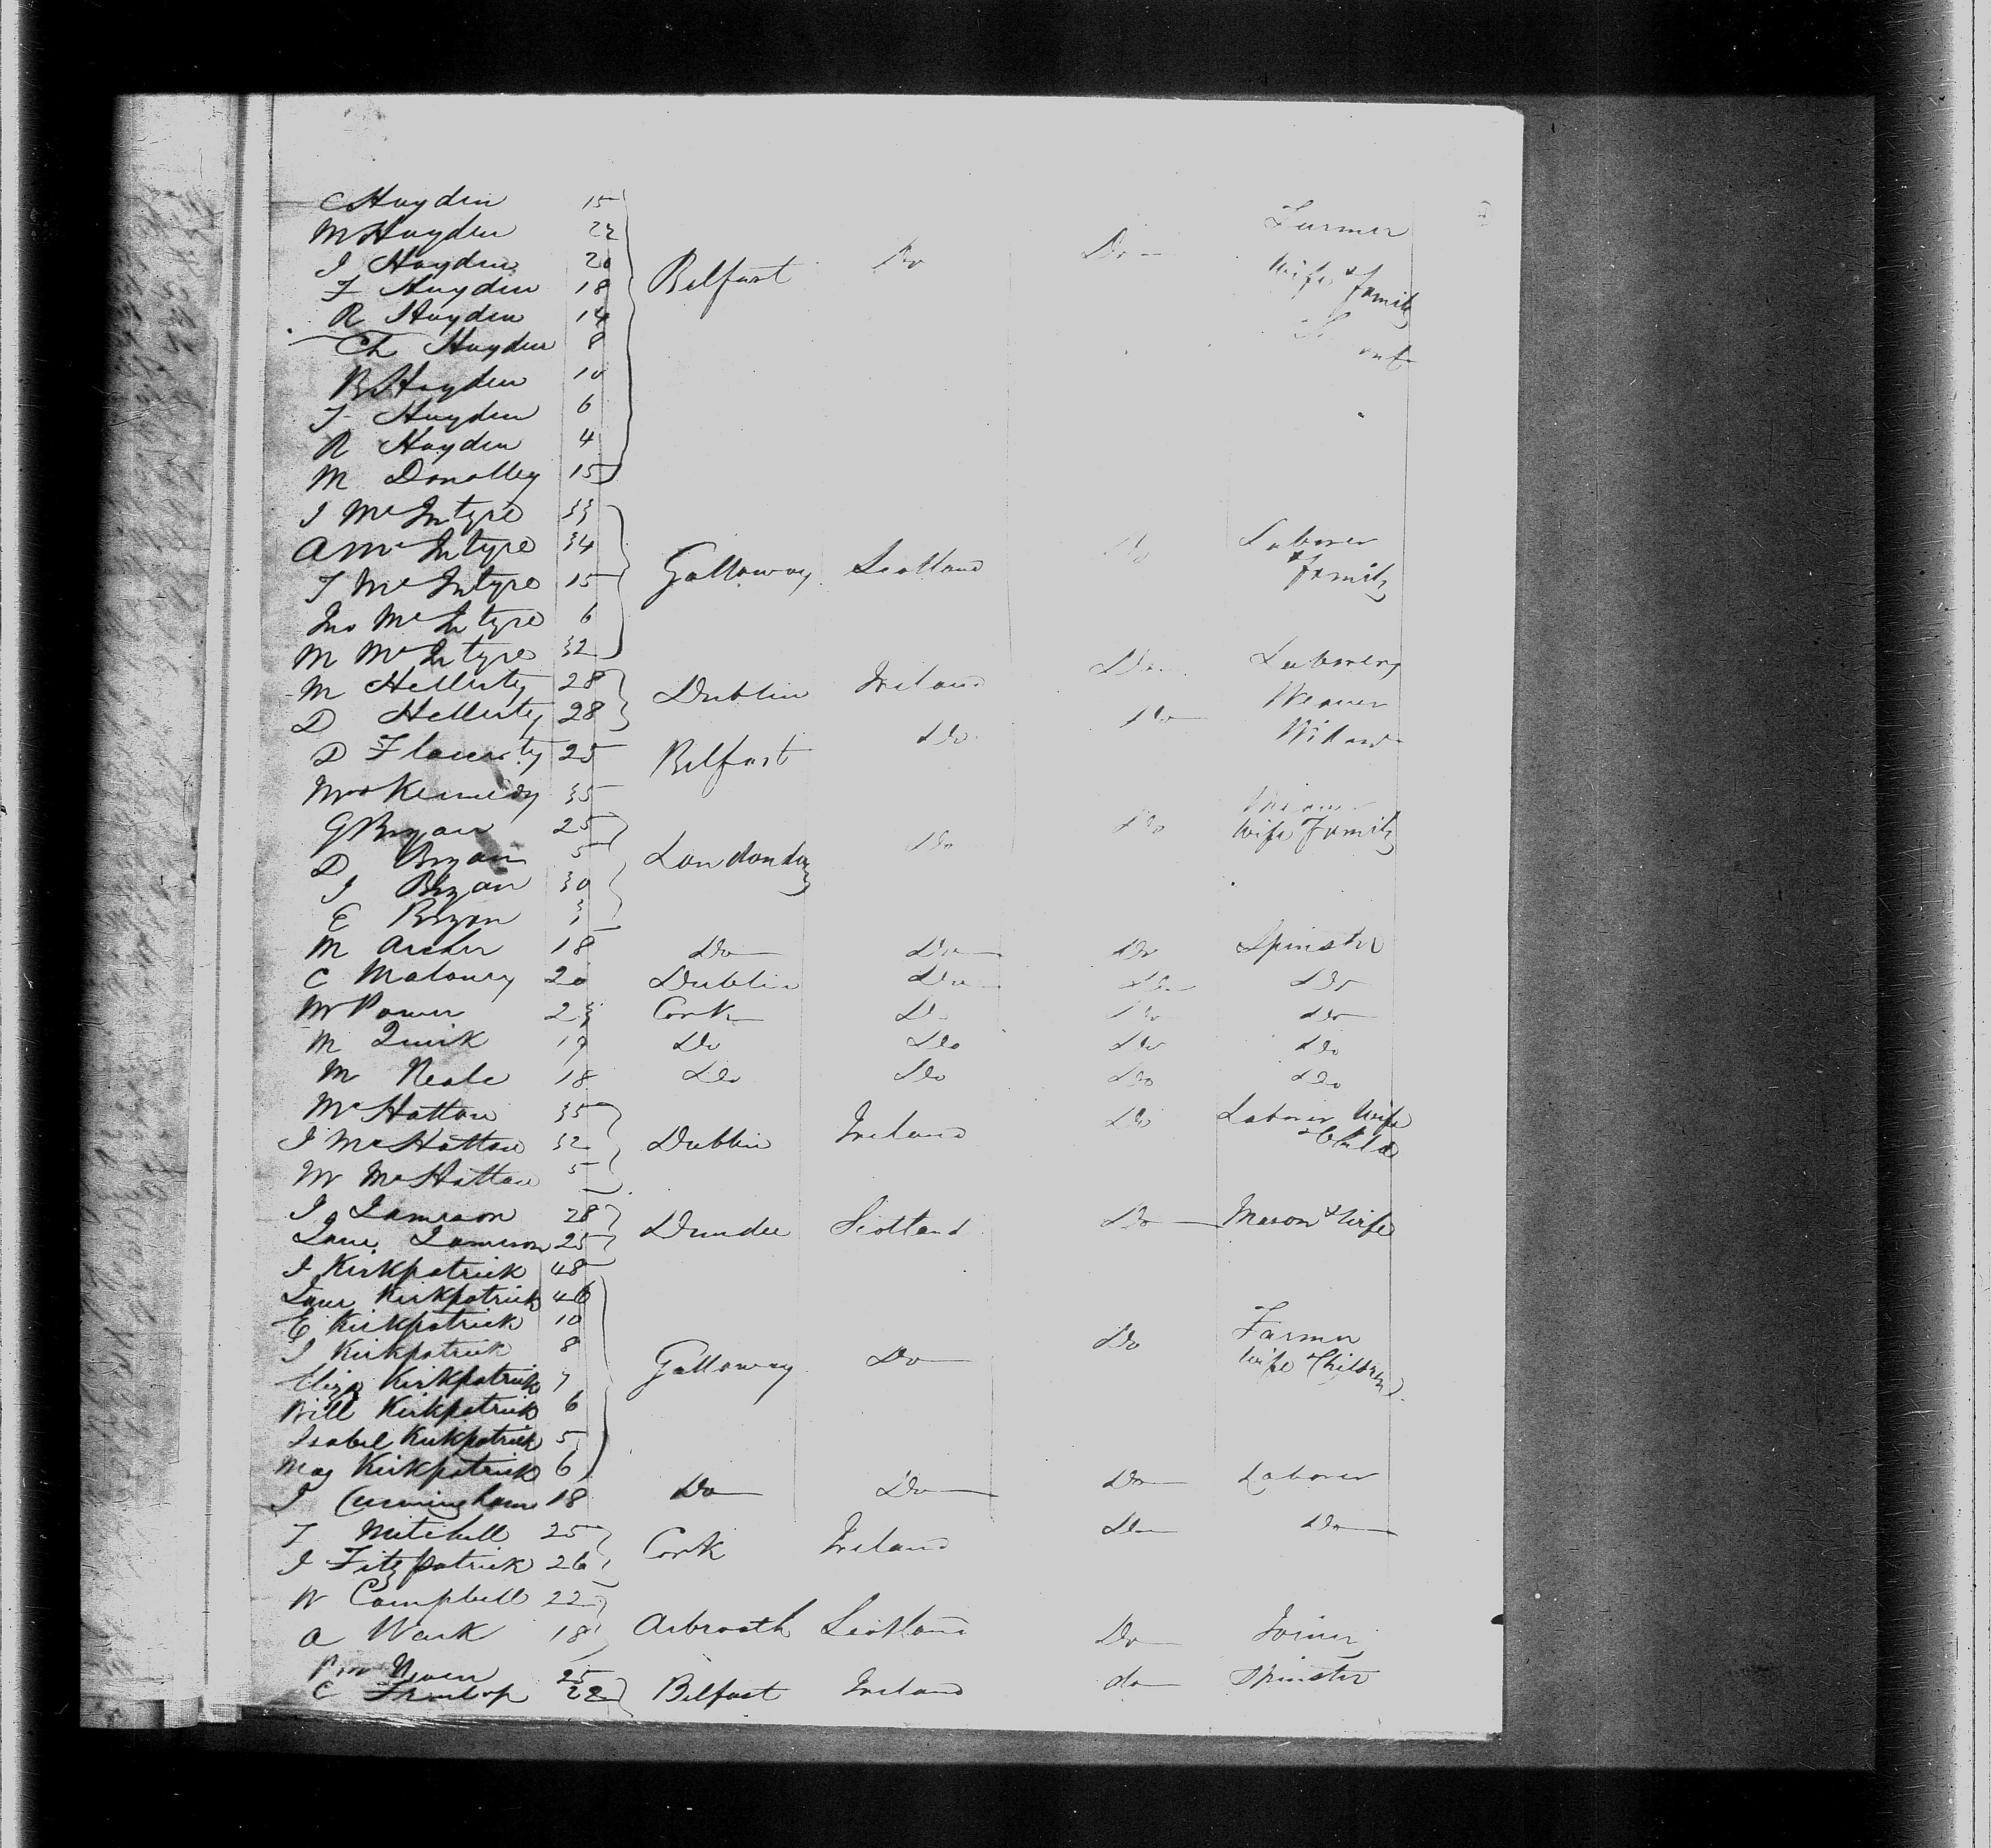 C Hayden 15
M Hayden 22 Farmer
J Hayden 20 Belfast Do Do
F Hayden 18 Wife & family
R Hayden 14
Ch Hayden 8
B Hayden 10
J Hayden 6
R Hayden 4
M Donalley 15
J McIntyre 33
A McIntyre 34 Laborer
J McIntyre 15 Galloway Scotland Do & family
Jno McIntyre 6
M McIntyre 32
M Hellerty 28 Dublin Ireland Do Laborers
D Hellerty 28 Weaver
D Flaverty 25 Belfast Do Do Widow
Mrs Kennedy 35
G Bryan 25 Do
D Bryan 5 Londonderry Do Wife Family
J Bryan 30
E Bryan
M Archer 18 Do Do Do Spinster
C Maloney 20 Dublin Do Do Do
M Power 23 Cork D Do do
M Quirk 19 Do Do Do Do
M Neale 18 Do Do Do Do
McHattan 35 Laborer Wife
J McHattan 32 Dublin Ireland Do & Child
W McHattan 5
J Jameson 28 Dundee Scotland Do Mason & Wife
Jane Jameson 25
J Kirkpatrick 48
Jane Kirkpatrick 46
E Kirkpatrick 10 Farmer
J Kirkpatrick 8 Galloway Do Do Wife Children
Eliza Kirkpatrick 7
Will Kirkpatrick 6
Isabel Kirkpatrick 5
Mag Kirkpatrick 6
J Cunningham 18 Do Do Do Laborer
T Mitchell 25 Cork Ireland Do Do
J Fitzpatrick 26
W Campbell 22
A Wark 18 Arbroath Scotland Do Joiner
Niven 25
C 22 Belfast Ireland do Spinster